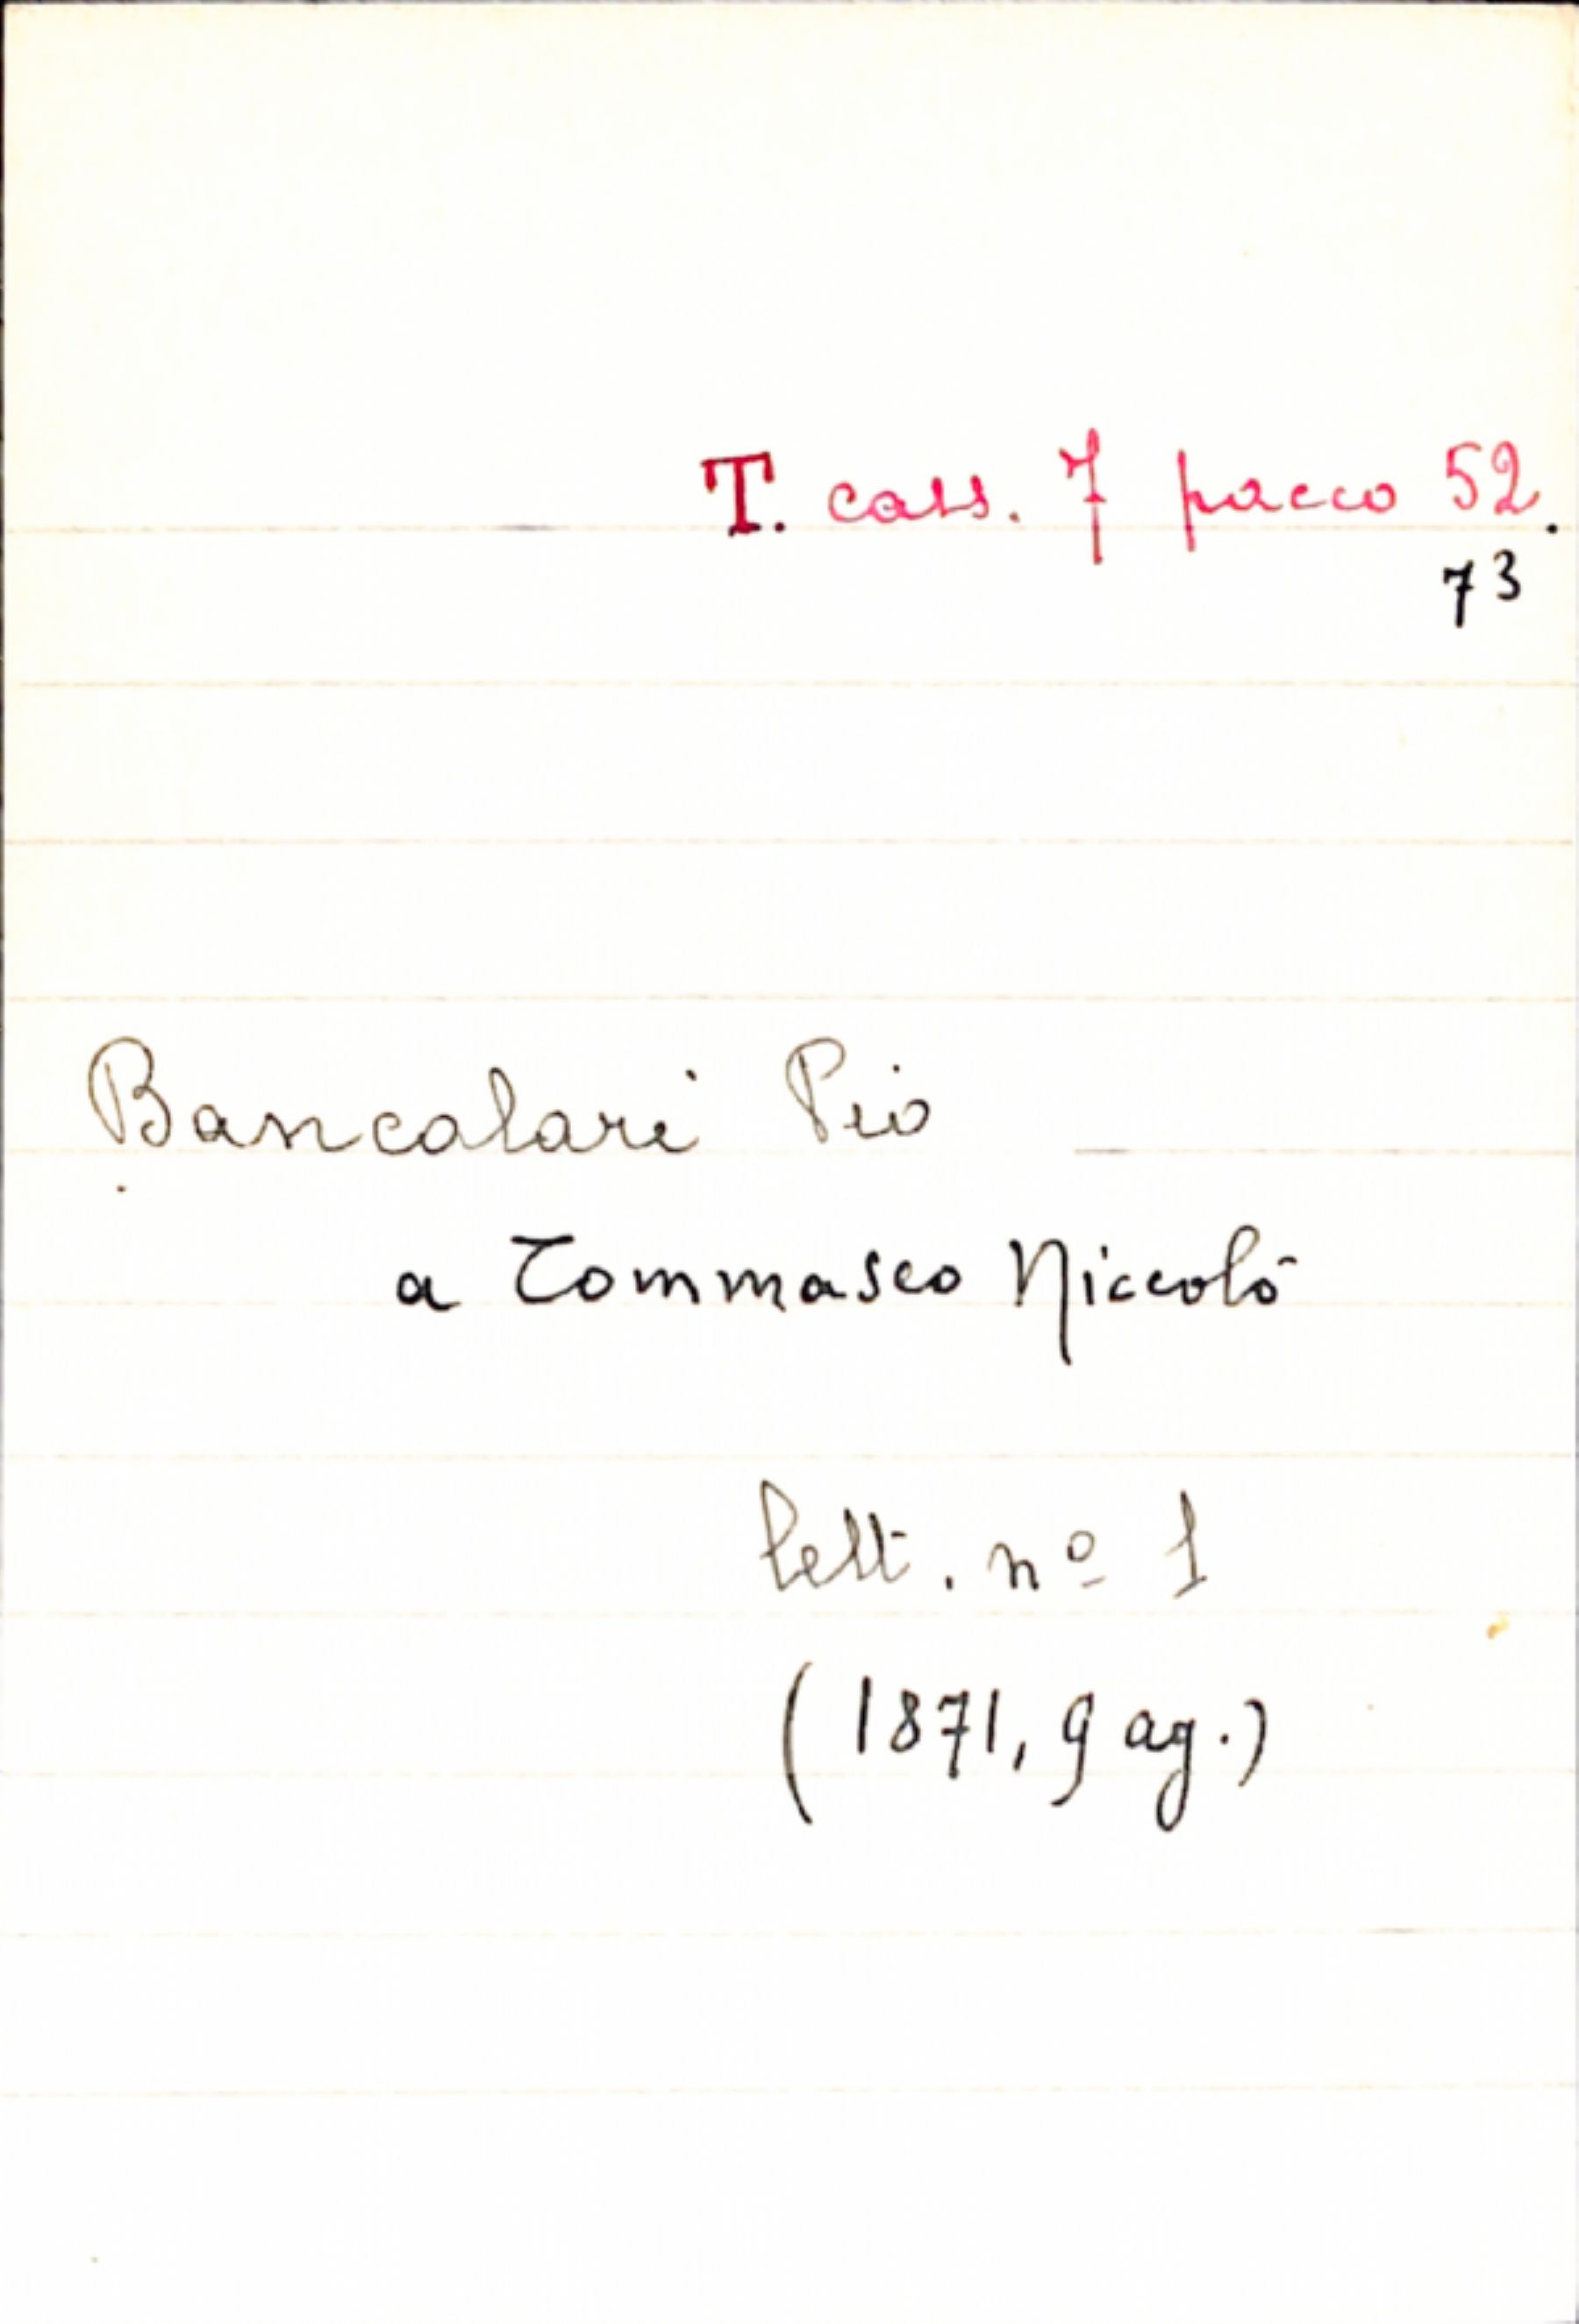 T. cass. 7 pacco 52.
73
Bancalari Pio
a Tommaseo Niccolò
lett. nº 1
(1871, 9 ag.)